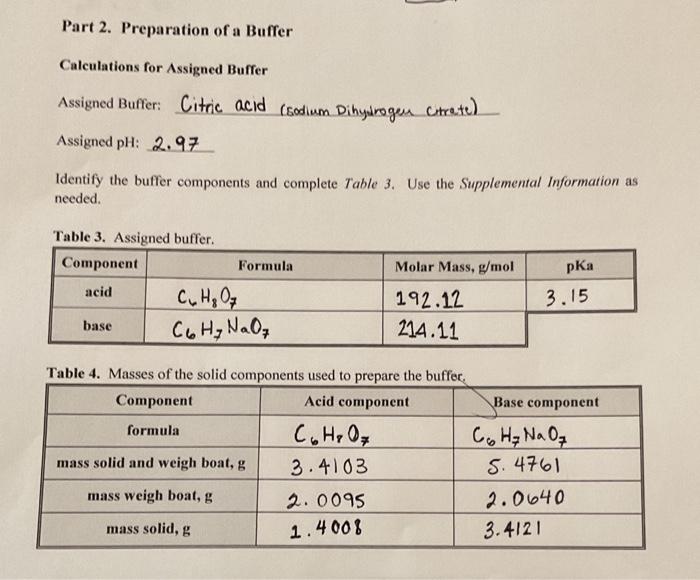 Part 2. Preparation of a Buffer
Calculations for Assigned Buffer
Assigned Buffer: Citric acid (sodium Dihydrogen Citrate)
Assigned pH: 2.97
Identify the buffer components and complete Table 3. Use the Supplemental Information as
needed.
Table 3. Assigned buffer.
Component Formula Molar Mass, g/mol pKa
acid C6H8O7 192.12 3.15
base C6H7NaO7 214.11
Table 4. Masses of the solid components used to prepare the buffer.
Component Acid component Base component
formula C6H8O7 C6H7NaO7
mass solid and weigh boat, g 3.4103 5.4761
mass weigh boat, g 2.0095 2.0640
mass solid, g 1.4008 3.4121